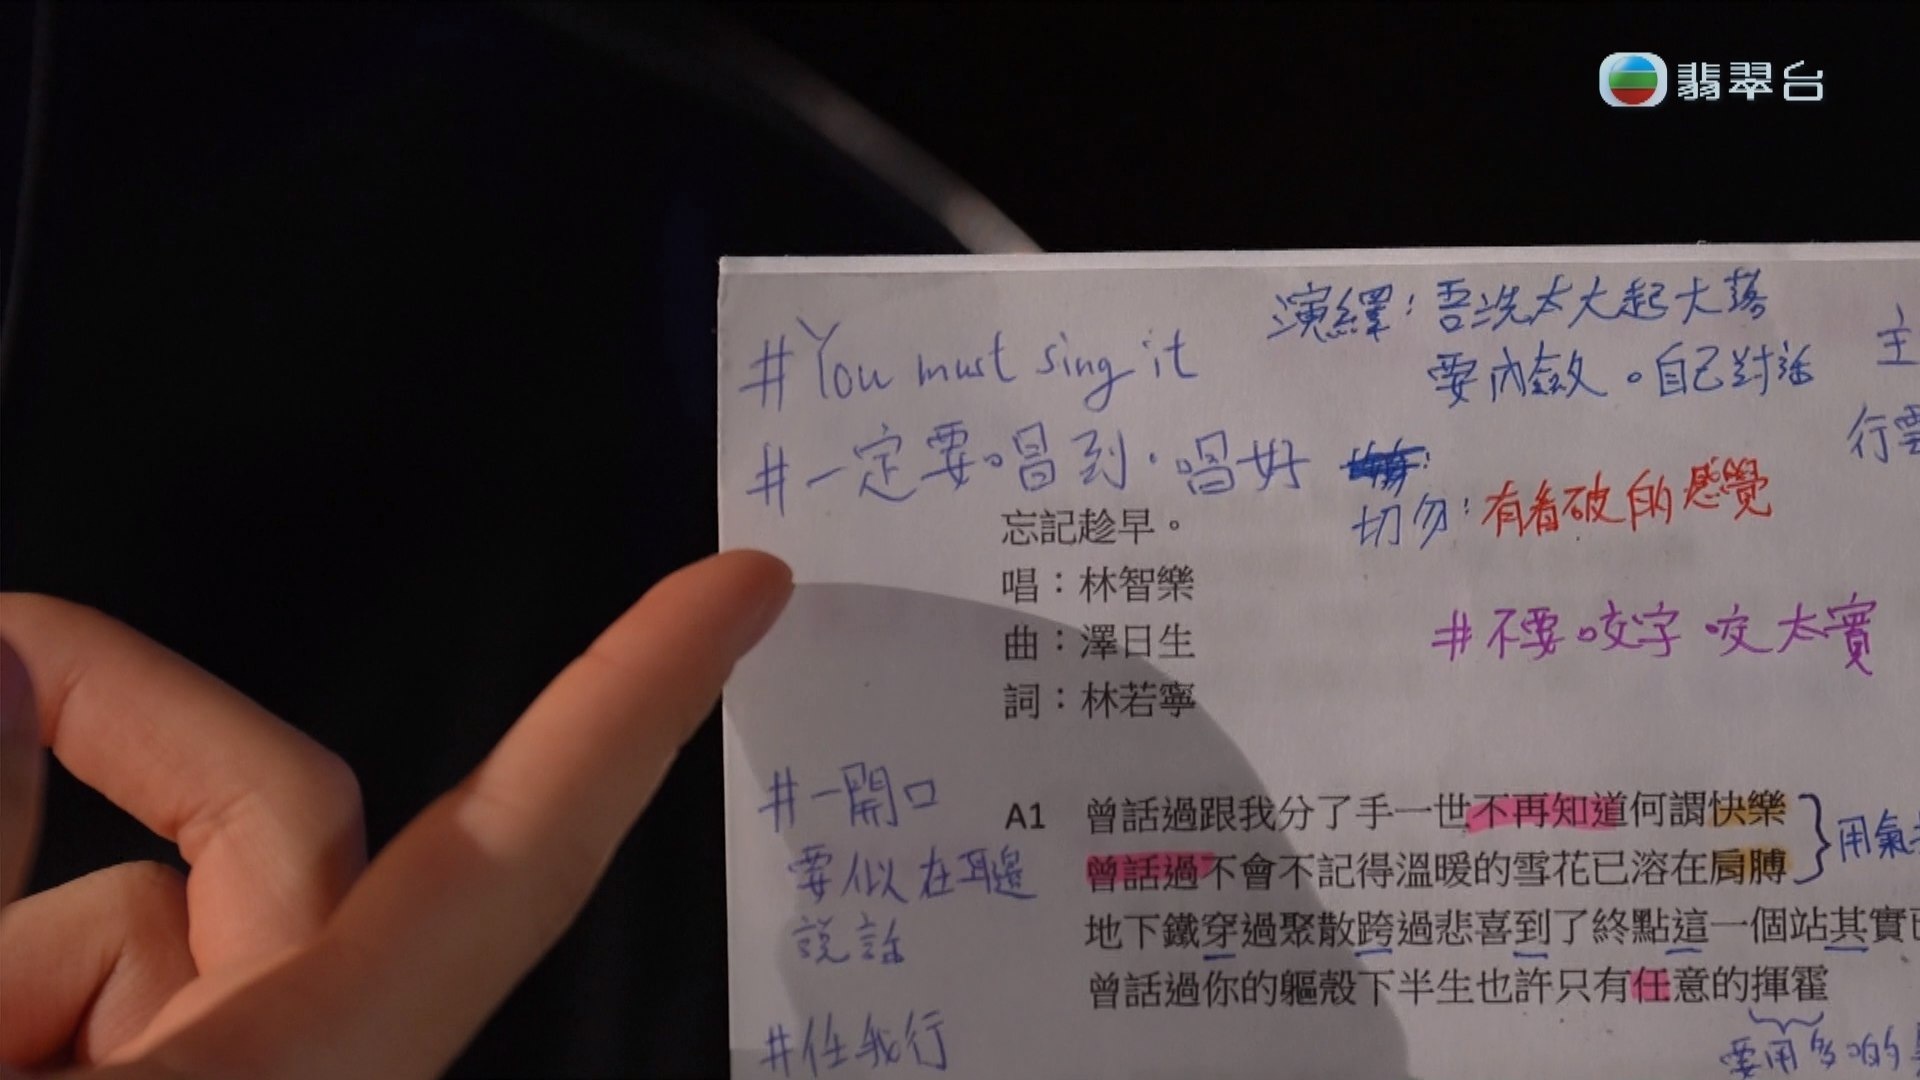 翡翠台
演繹：吾洗太大起大落
#You must sing it
要內斂。自己對話
主
#一定要唱到．唱好
行雲
切勿：有看破的感覺
忘記趁早。
唱：林智樂
#不要咬字咬太實
曲：澤日生
詞：林若寧
#一開口
要似在耳邊
說話
A1 曾話過跟我分了手一世不再知道何謂快樂
用氣
曾話過不會不記得溫暖的雪花已溶在肩膊
地下鐵穿過聚散跨過悲喜到了終點這一個站其實
曾話過你的軀殼下半生也許只有任意的揮霍
#任我行
要用多啲的